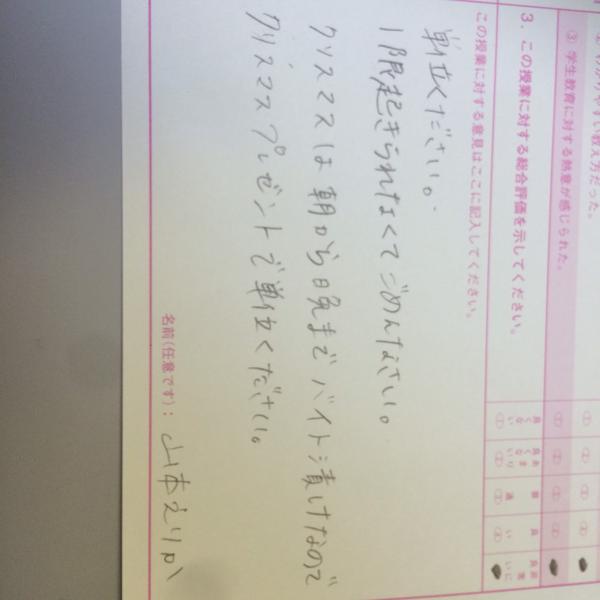 ② わかりやすい教え方だった。
③ 学生教育に対する熱意が感じられた。
3. この授業に対する総合評価を示してください。
この授業に対する意見はここに記入してください。
良くない
あまり良くない
普通
良い
非常に良い
単位ください。
1限起きられなくてごめんなさい。
クリスマスは朝から晩までバイト漬けなので
クリスマスプレゼントで単位ください。
名前(任意です): 山本えりか